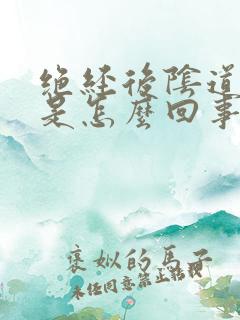 绝经後陰道
是怎麼回事
褒姒的馬子
未经同意禁止转载